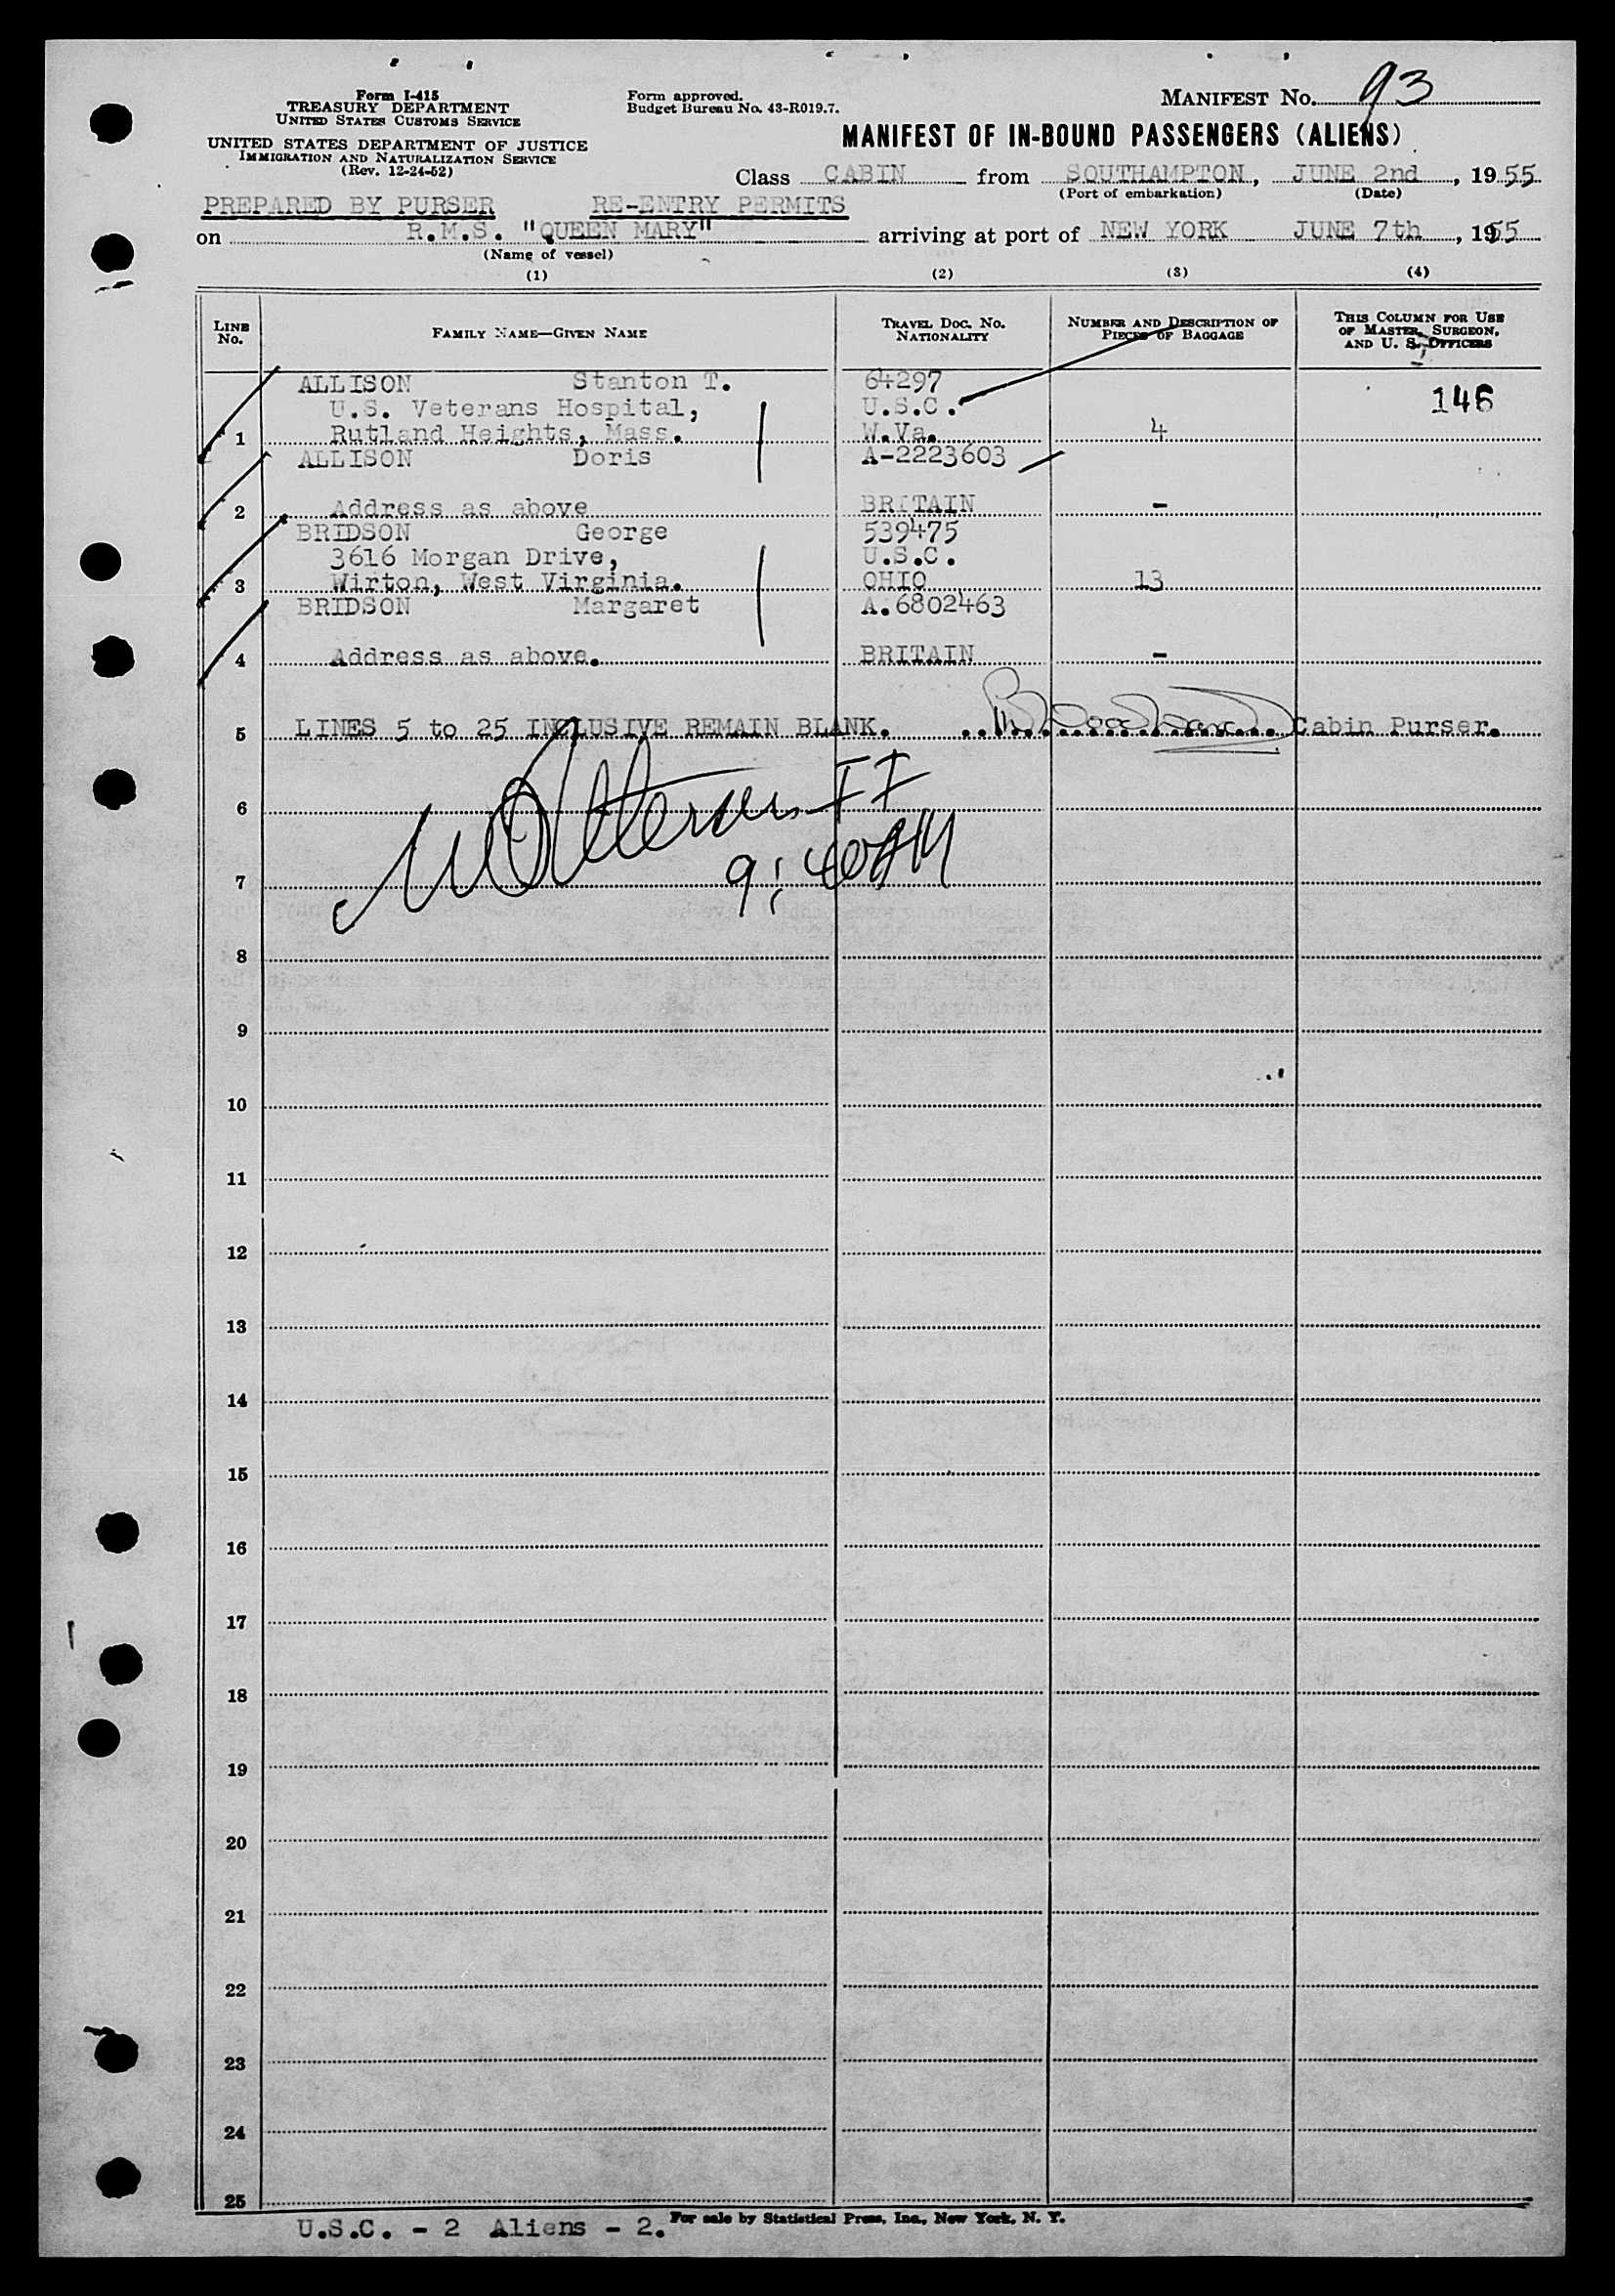 Form I-415
TREASURY DEPARTMENT
UNITED STATES CUSTOMS SERVICE
UNITED STATES DEPARTMENT OF JUSTICE
IMMIGRATION AND NATURALIZATION SERVICE
(Rev. 12-24-52)
Form approved.
Budget Bureau No. 43-R019.7.
MANIFEST No. 93
MANIFEST OF IN-BOUND PASSENGERS (ALIENS)
Class CABIN from SOUTHAMPTON, JUNE 2nd, 1955
(Port of embarkation) (Date)
PREPARED BY PURSER RE-ENTRY PERMITS
on R.M.S. "QUEEN MARY" arriving at port of NEW YORK JUNE 7th, 1955
(Name of vessel)
(1) (2) (3) (4)
LINE No. FAMILY NAME—GIVEN NAME TRAVEL DOC. No. NATIONALITY NUMBER AND DESCRIPTION OF PIECES OF BAGGAGE THIS COLUMN FOR USE OF MASTER, SURGEON, AND U. S. OFFICERS
ALLISON Stanton T. 64297
U.S. Veterans Hospital, U.S.C. 146
1 Rutland Heights, Mass. W.Va. 4
ALLISON Doris A-2223603
2 Address as above BRITAIN -
BRIDSON George 539475
3616 Morgan Drive, U.S.C.
3 Wirton, West Virginia. OHIO 13
BRIDSON Margaret A.6802463
4 Address as above. BRITAIN -
5 LINES 5 to 25 INCLUSIVE REMAIN BLANK. Cabin Purser.
6
7 9:40AM
8
9
10
11
12
13
14
15
16
17
18
19
20
21
22
23
24
25
U.S.C. - 2 Aliens - 2. For sale by Statistical Press, Inc., New York, N. Y.